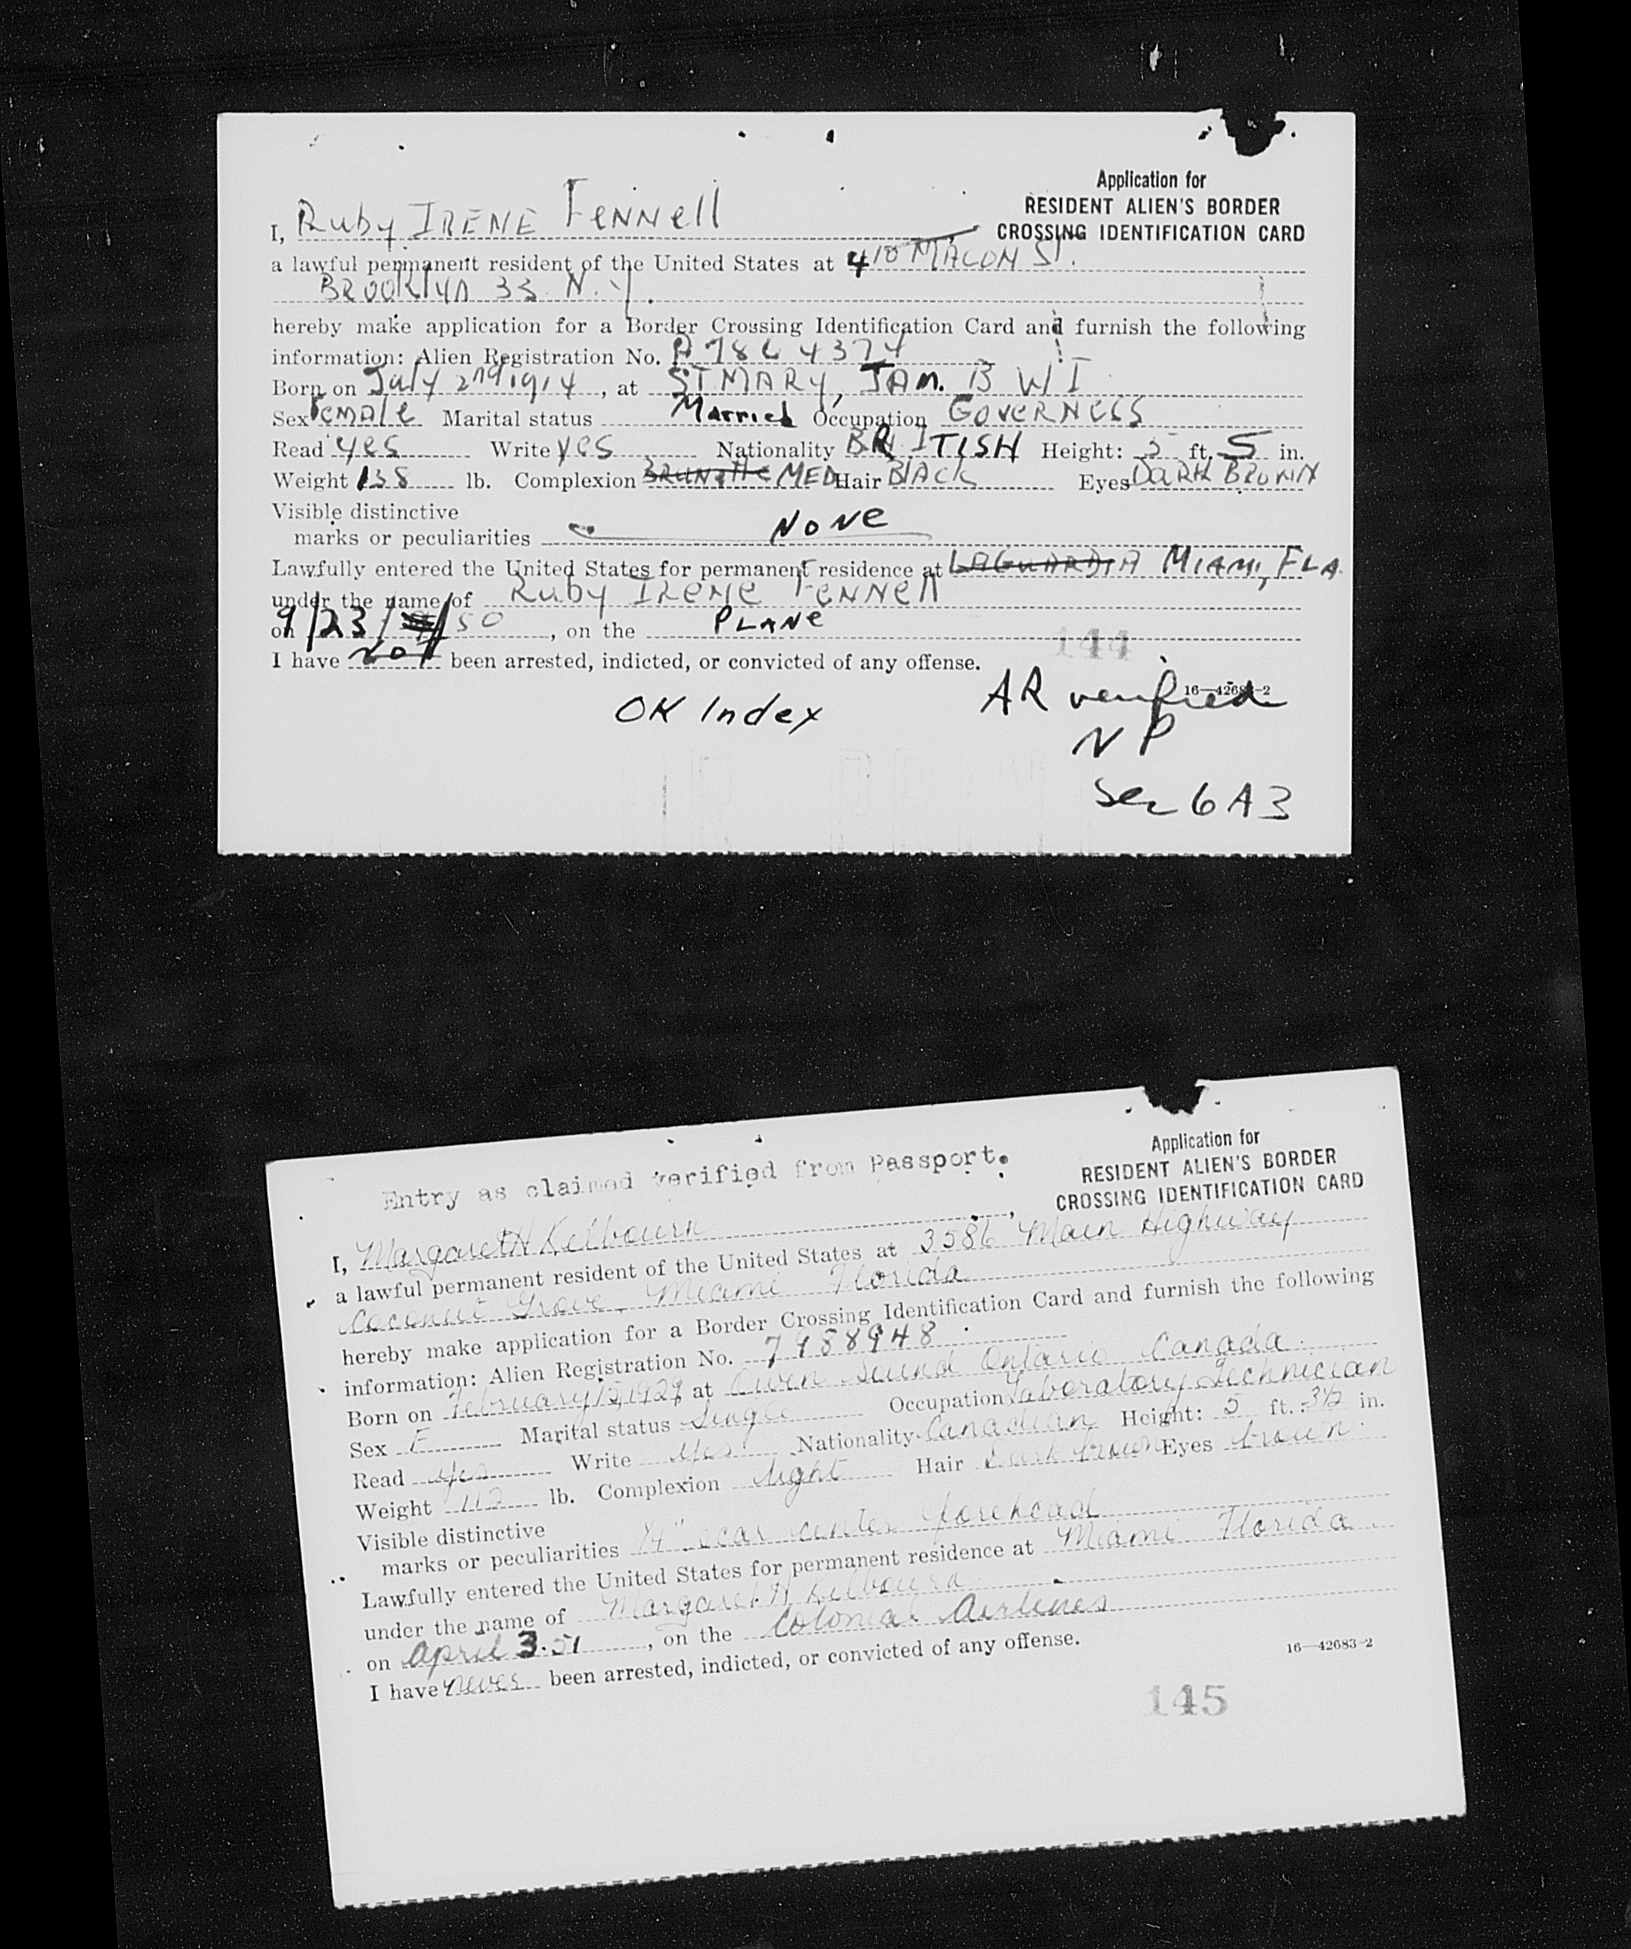 Application for
RESIDENT ALIEN'S BORDER
CROSSING IDENTIFICATION CARD
I, Ruby IRENE FeNNell
a lawful permanent resident of the United States at 410 MACON ST.
BROOKlyn 33 N.Y.
hereby make application for a Border Crossing Identification Card and furnish the following
information: Alien Registration No. A 7864374
Born on July 2nd 1914, at ST MARY, JAM. B W I
Sex Female Marital status Married Occupation GOVERNESS
Read yes Write yes Nationality BRITISH Height: 5 ft. 5 in.
Weight 138 lb. Complexion BRUNette MED Hair BlACK Eyes DARK BROWN
Visible distinctive
marks or peculiarities NoNe
Lawfully entered the United States for permanent residence at LAGUARDIA MIAMI, FLA.
under the name of Ruby IRENE FeNNell
on 9/23/50, on the PLANe
144
I have not been arrested, indicted, or convicted of any offense.
16—42683-2
OK Index
AR verified
NP
Sec 6A3
Application for
RESIDENT ALIEN'S BORDER
CROSSING IDENTIFICATION CARD
Entry as claimed verified from Passport.
I, Margaret H Kilbourn,
a lawful permanent resident of the United States at 3586 Main Highway
Coconut Grove, Miami Florida
hereby make application for a Border Crossing Identification Card and furnish the following
information: Alien Registration No. 7988948
Born on February 12, 1929 at Owen Sound Ontario Canada
Sex F Marital status Single Occupation Laboratory Technician
Read yes Write yes Nationality Canadian Height: 5 ft. 3½ in.
Weight 112 lb. Complexion light Hair Dark brown Eyes brown
Visible distinctive
marks or peculiarities ¼" scar center forehead
Lawfully entered the United States for permanent residence at Miami Florida
under the name of Margaret H Kilbourn
on April 3.51, on the Colonial Airlines
I have never been arrested, indicted, or convicted of any offense.
16—42683-2
145